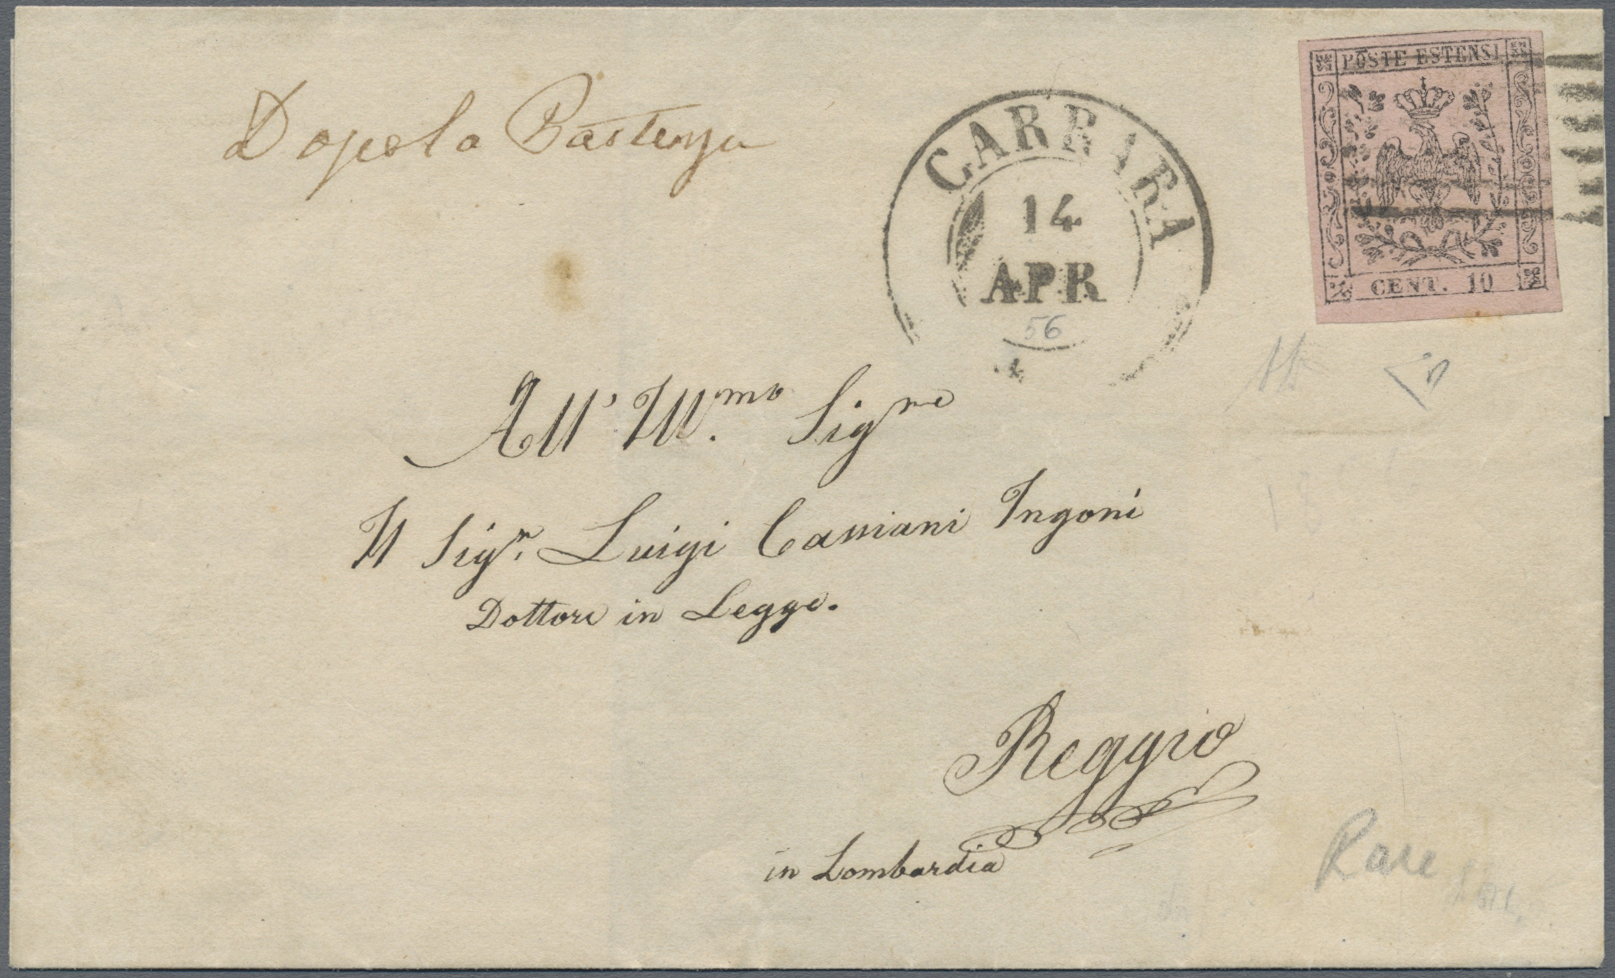 POSTE ESTENSI
CENT. 10
Dopo la Partenza
CARRARA
14
APR
56
All' Ill.mo Sigre
Il Sigr. Luigi Cassiani Ingoni
Dottore in Legge.
Reggio
in Lombardia
Rare